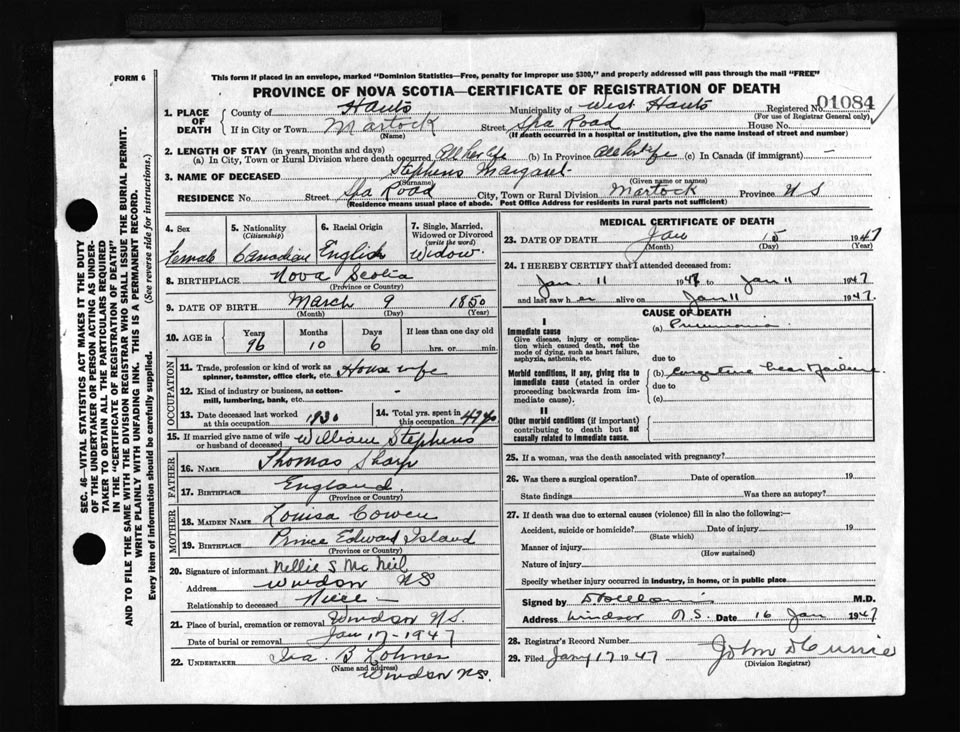 FORM 6
This form if placed in an envelope, marked "Dominion Statistics—Free, penalty for improper use $300," and properly addressed will pass through the mail "FREE"
PROVINCE OF NOVA SCOTIA—CERTIFICATE OF REGISTRATION OF DEATH
1. PLACE OF DEATH
County of Hants Municipality of West Hants Registered No. 01084
(For use of Registrar General only)
If in City or Town Martock Street Spa Road House No.
(Name) (If death occurred in a hospital or institution, give the name instead of street and number)
2. LENGTH OF STAY (in years, months and days)
(a) In City, Town or Rural Division where death occurred All her life (b) In Province All her life (c) In Canada (if immigrant) —
3. NAME OF DECEASED Stephens Margaret
(Surname) (Given name or names)
RESIDENCE No. Street Spa Road City, Town or Rural Division Martock Province N S
(Residence means usual place of abode. Post Office Address for residents in rural parts not sufficient)
4. Sex
Female
5. Nationality
(Citizenship)
Canadian
6. Racial Origin
English
7. Single, Married, Widowed or Divorced
(write the word)
Widow
8. BIRTHPLACE Nova Scotia
(Province or Country)
9. DATE OF BIRTH March 9 1850
(Month) (Day) (Year)
10. AGE in Years Months Days If less than one day old
96 10 6 hrs. or min.
OCCUPATION
11. Trade, profession or kind of work as House wife
spinner, teamster, office clerk, etc.
12. Kind of industry or business, as cotton-mill, lumbering, bank, etc.
13. Date deceased last worked at this occupation 1930
14. Total yrs. spent in this occupation
15. If married give name of wife or husband of deceased William Stephens
FATHER
16. NAME Thomas Sharp
17. BIRTHPLACE England
(Province or Country)
MOTHER
18. MAIDEN NAME Louisa Cowen
19. BIRTHPLACE Prince Edward Island
(Province or Country)
20. Signature of informant Nellie S McNeil
Address Windsor NS
Relationship to deceased Niece —
21. Place of burial, cremation or removal Windsor N.S.
Date of burial or removal Jan 17-1947
22. UNDERTAKER Ira. B Lohnes
(Name and address)
Windsor NS.
MEDICAL CERTIFICATE OF DEATH
23. DATE OF DEATH Jan 15 1947
(Month) (Day) (Year)
24. I HEREBY CERTIFY that I attended deceased from:
Jan. 11 1947 to Jan 11 1947
and last saw her alive on Jan 11 1947.
CAUSE OF DEATH
I
Immediate cause (a) Pneumonia
Give disease, injury or complication which caused death, not the mode of dying, such as heart failure, asphyxia, asthenia, etc.
due to
Morbid conditions, if any, giving rise to immediate cause (stated in order proceeding backwards from immediate cause).
(b) Congestive heart failure
due to
(c)
II
Other morbid conditions (if important) contributing to death but not causally related to immediate cause.
25. If a woman, was the death associated with pregnancy?
26. Was there a surgical operation? Date of operation 19
State findings Was there an autopsy?
27. If death was due to external causes (violence) fill in also the following:—
Accident, suicide or homicide? Date of injury 19
(State which)
Manner of injury
(How sustained)
Nature of injury
Specify whether injury occurred in industry, in home, or in public place
Signed by M.D.
Address Windsor N.S. Date 16 Jan 1947
28. Registrar's Record Number
29. Filed Jany 17 1947 John D Currie
(Division Registrar)
SEC. 46—VITAL STATISTICS ACT MAKES IT THE DUTY
OF THE UNDERTAKER OR PERSON ACTING AS UNDER-
TAKER TO OBTAIN ALL THE PARTICULARS REQUIRED
IN THE "CERTIFICATE OF REGISTRATION OF DEATH"
AND TO FILE THE SAME WITH THE DIVISION REGISTRAR WHO SHALL ISSUE THE BURIAL PERMIT.
WRITE PLAINLY WITH UNFADING INK. THIS IS A PERMANENT RECORD.
Every item of information should be carefully supplied. (See reverse side for instructions.)